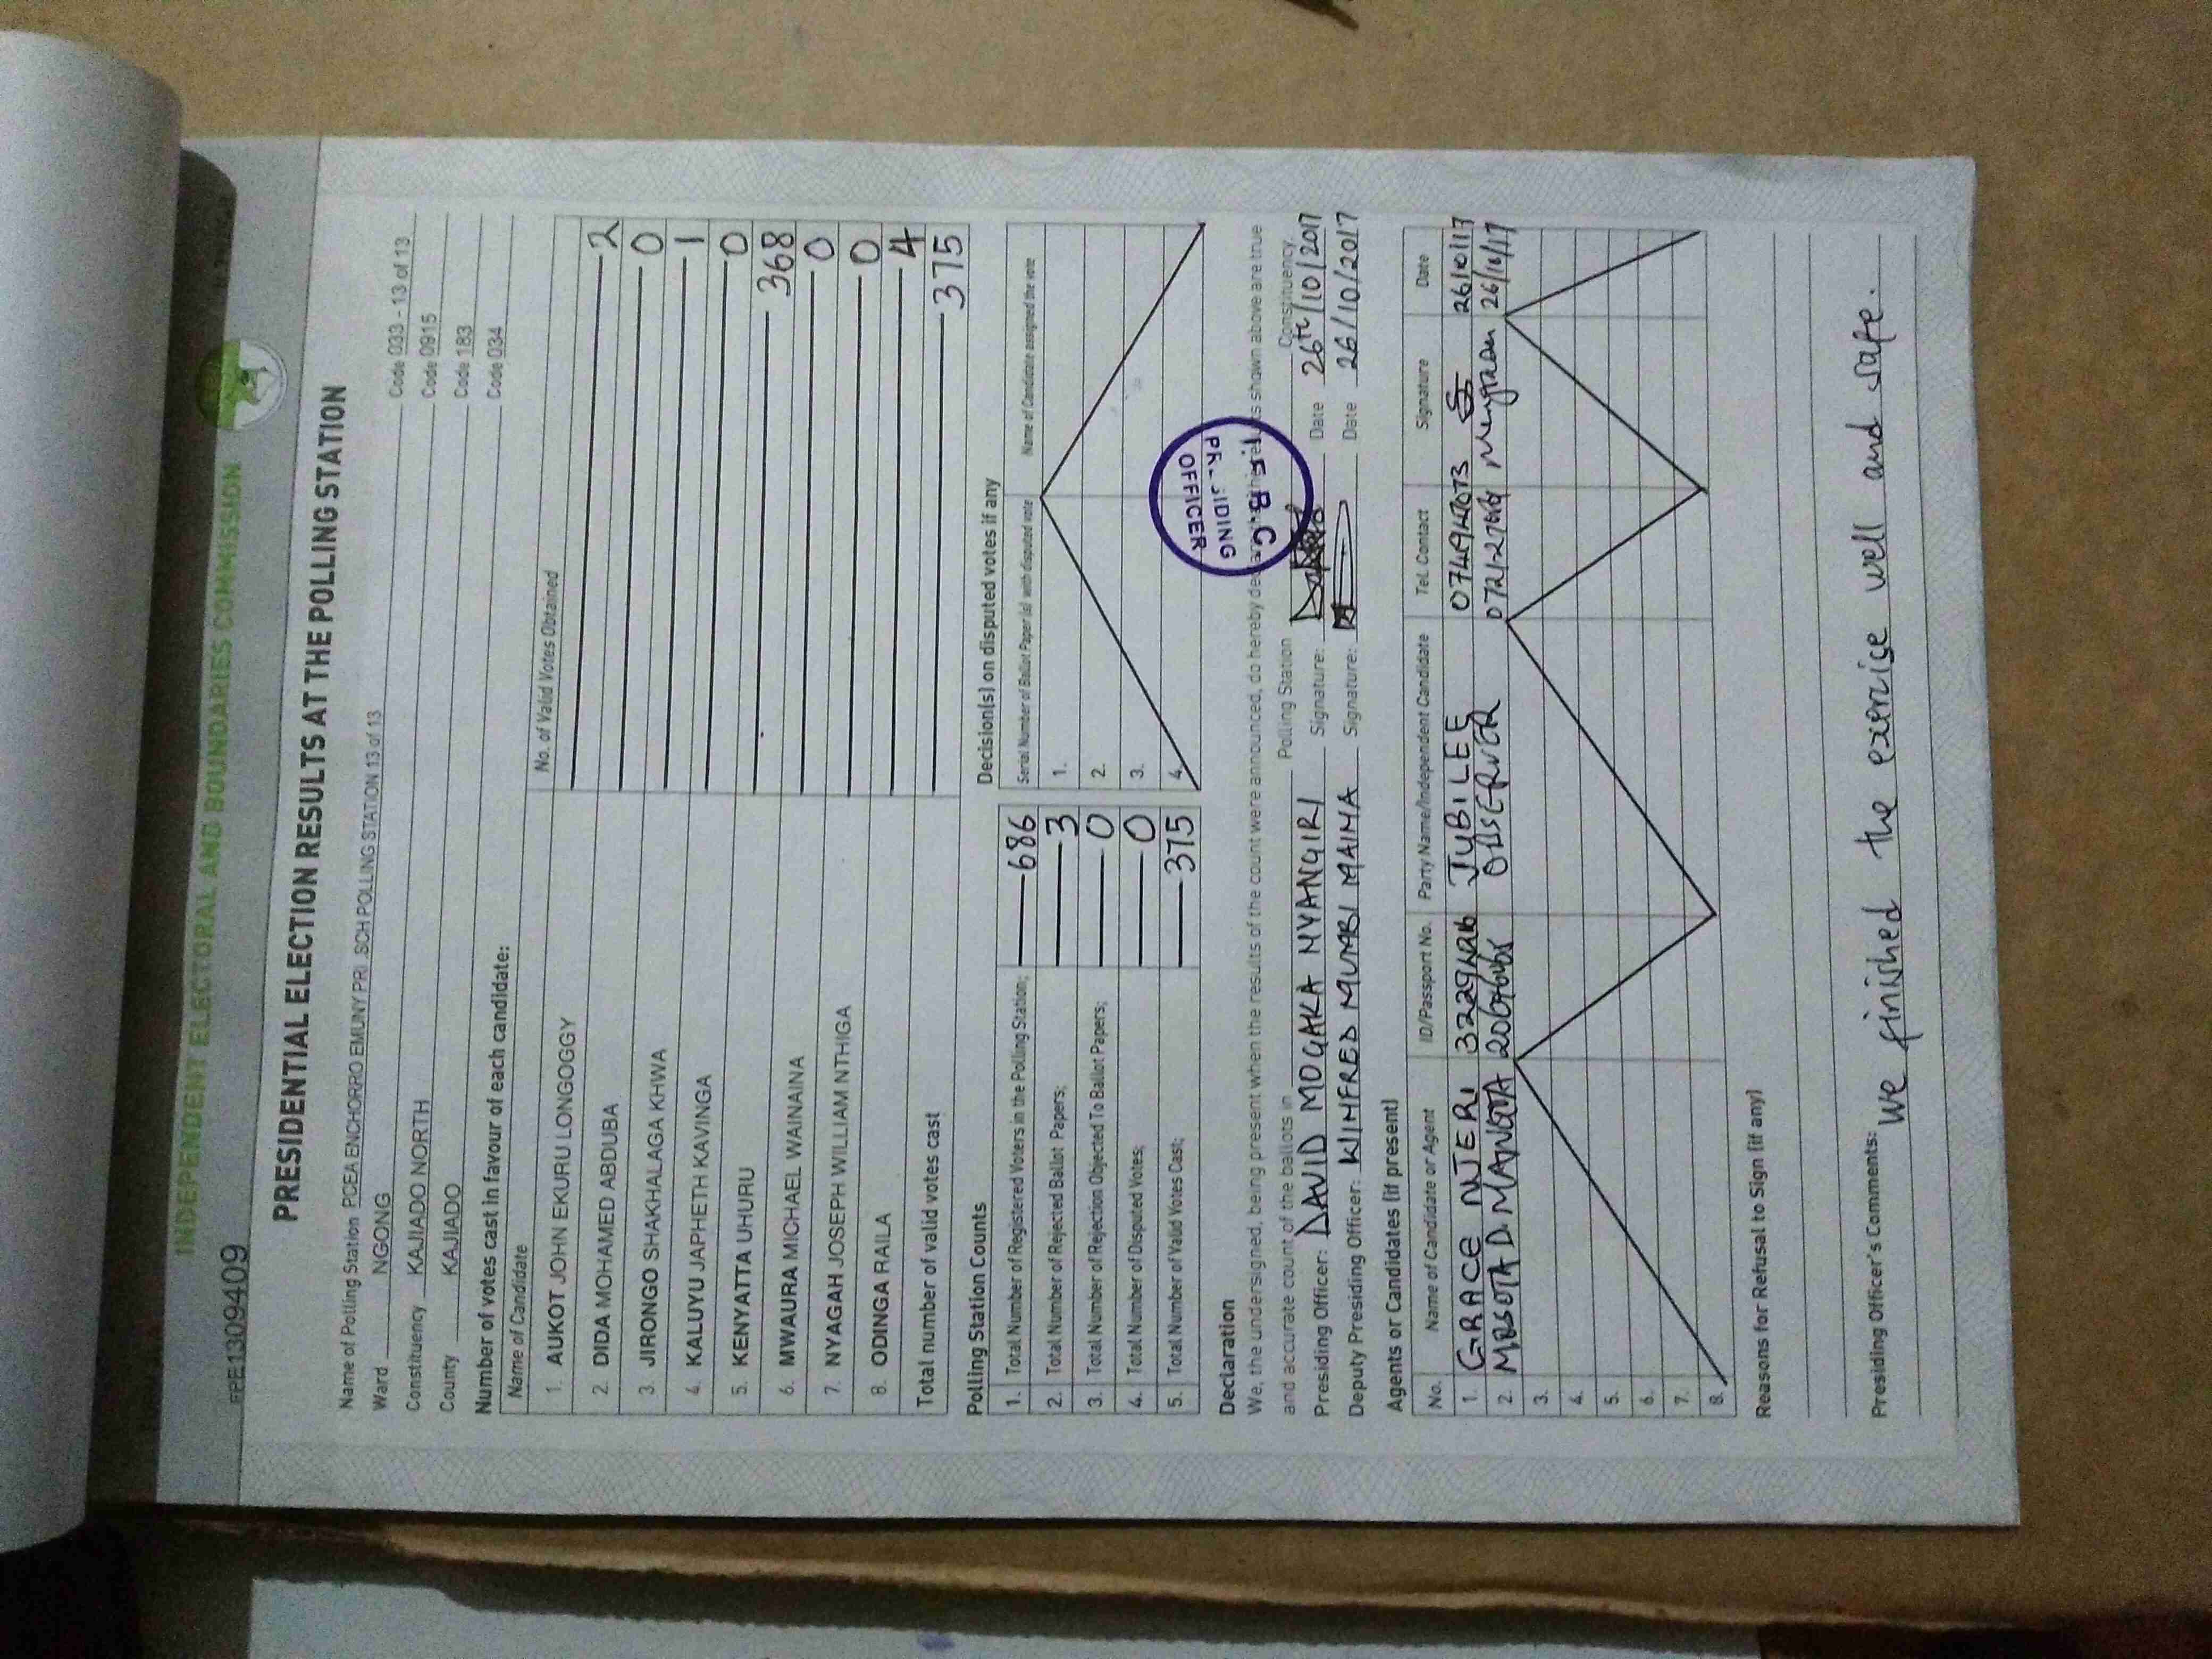 INDEPENDENT ELECTORAL AND BOUNDARIES COMMISSION
PRESIDENTIAL ELECTION RESULTS AT THE POLLING STATION
Name of Polling Station PCEA ENCHORRO EMUNY PRI .SCH POLLING STATION 13 of 13 Code 033 - 13 of 13
Ward NGONG Code 0915
Constituency KAJIADO NORTH Code 183
County KAJIADO Code 034
Number of votes cast in favour of each candidate:
Name of Candidate No. of Valid Votes Obtained
1. AUKOT JOHN EKURU LONGOGGY 2
2. DIDA MOHAMED ABDUBA 0
3. JIRONGO SHAKHALAGA KHWA 1
4. KALUYU JAPHETH KAVINGA 0
5. KENYATTA UHURU 368
6. MWAURA MICHAEL WAINAINA 0
7. NYAGAH JOSEPH WILLIAM NTHIGA 0
8. ODINGA RAILA 4
Total number of valid votes cast 375
Polling Station Counts
1. Total Number of Registered Voters in the Polling Station; 686
2. Total Number of Rejected Ballot Papers; 3
3. Total Number of Rejection Objected To Ballot Papers; 0
4. Total Number of Disputed Votes; 0
5. Total Number of Valid Votes Cast; 375
Decision(s) on disputed votes if any
Serial Number of Ballot Paper (s) with disputed vote Name of Candidate assigned the vote
1.
2.
3.
4.
Declaration
We, the undersigned, being present when the results of the count were announced, do hereby shown above are true
and accurate count of the ballots in Polling Station Constituency.
I.E.B.C
OFFICER
Presiding Officer: DAVID MOGAKA NYANGIRI Signature: Date 26th/10/2017
Deputy Presiding Officer: WINFRED MUMBI MAINA Signature: Date 26/10/2017
Agents or Candidates (if present)
No. Name of Candidate or Agent ID/Passport No. Party Name/Independent Candidate Tel. Contact Signature Date
1. GRACE NJERI JUBILEE 26/10/17
2. OBSERVER 26/10/17
3.
4.
5.
6.
7.
8.
Reasons for Refusal to Sign (if any)
Presiding Officer's Comments: We finished the exercise well and safe.